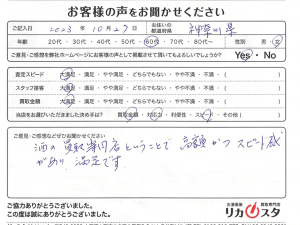 お客様の声をお聞かせください
ご記入日 2023年10月27日 お住いの都道府県 神奈川県
年齢 20代・30代・40代・50代・60代・70代・80代〜 性別 男・女
ご意見・ご感想を弊社ホームページにお客様の声として掲載させて頂いてもよろしいでしょうか? Yes・No
査定スピード 大満足・満足・やや満足・どちらでもない・やや不満・不満・( )
スタッフ接客 大満足・満足・やや満足・どちらでもない・やや不満・不満・( )
買取金額 大満足・満足・やや満足・どちらでもない・やや不満・不満・( )
当店をお選びいただきました決め手は? 買取金額・対応力・利便性・ ・その他( )
ご意見・ご感想などぜひお聞かせください
酒の買取専門店ということで高額かつスピード感
があり、満足です。
ご協力ありがとうございました。
この度は誠にありがとうございました。
お酒買取専門店
リカスタ